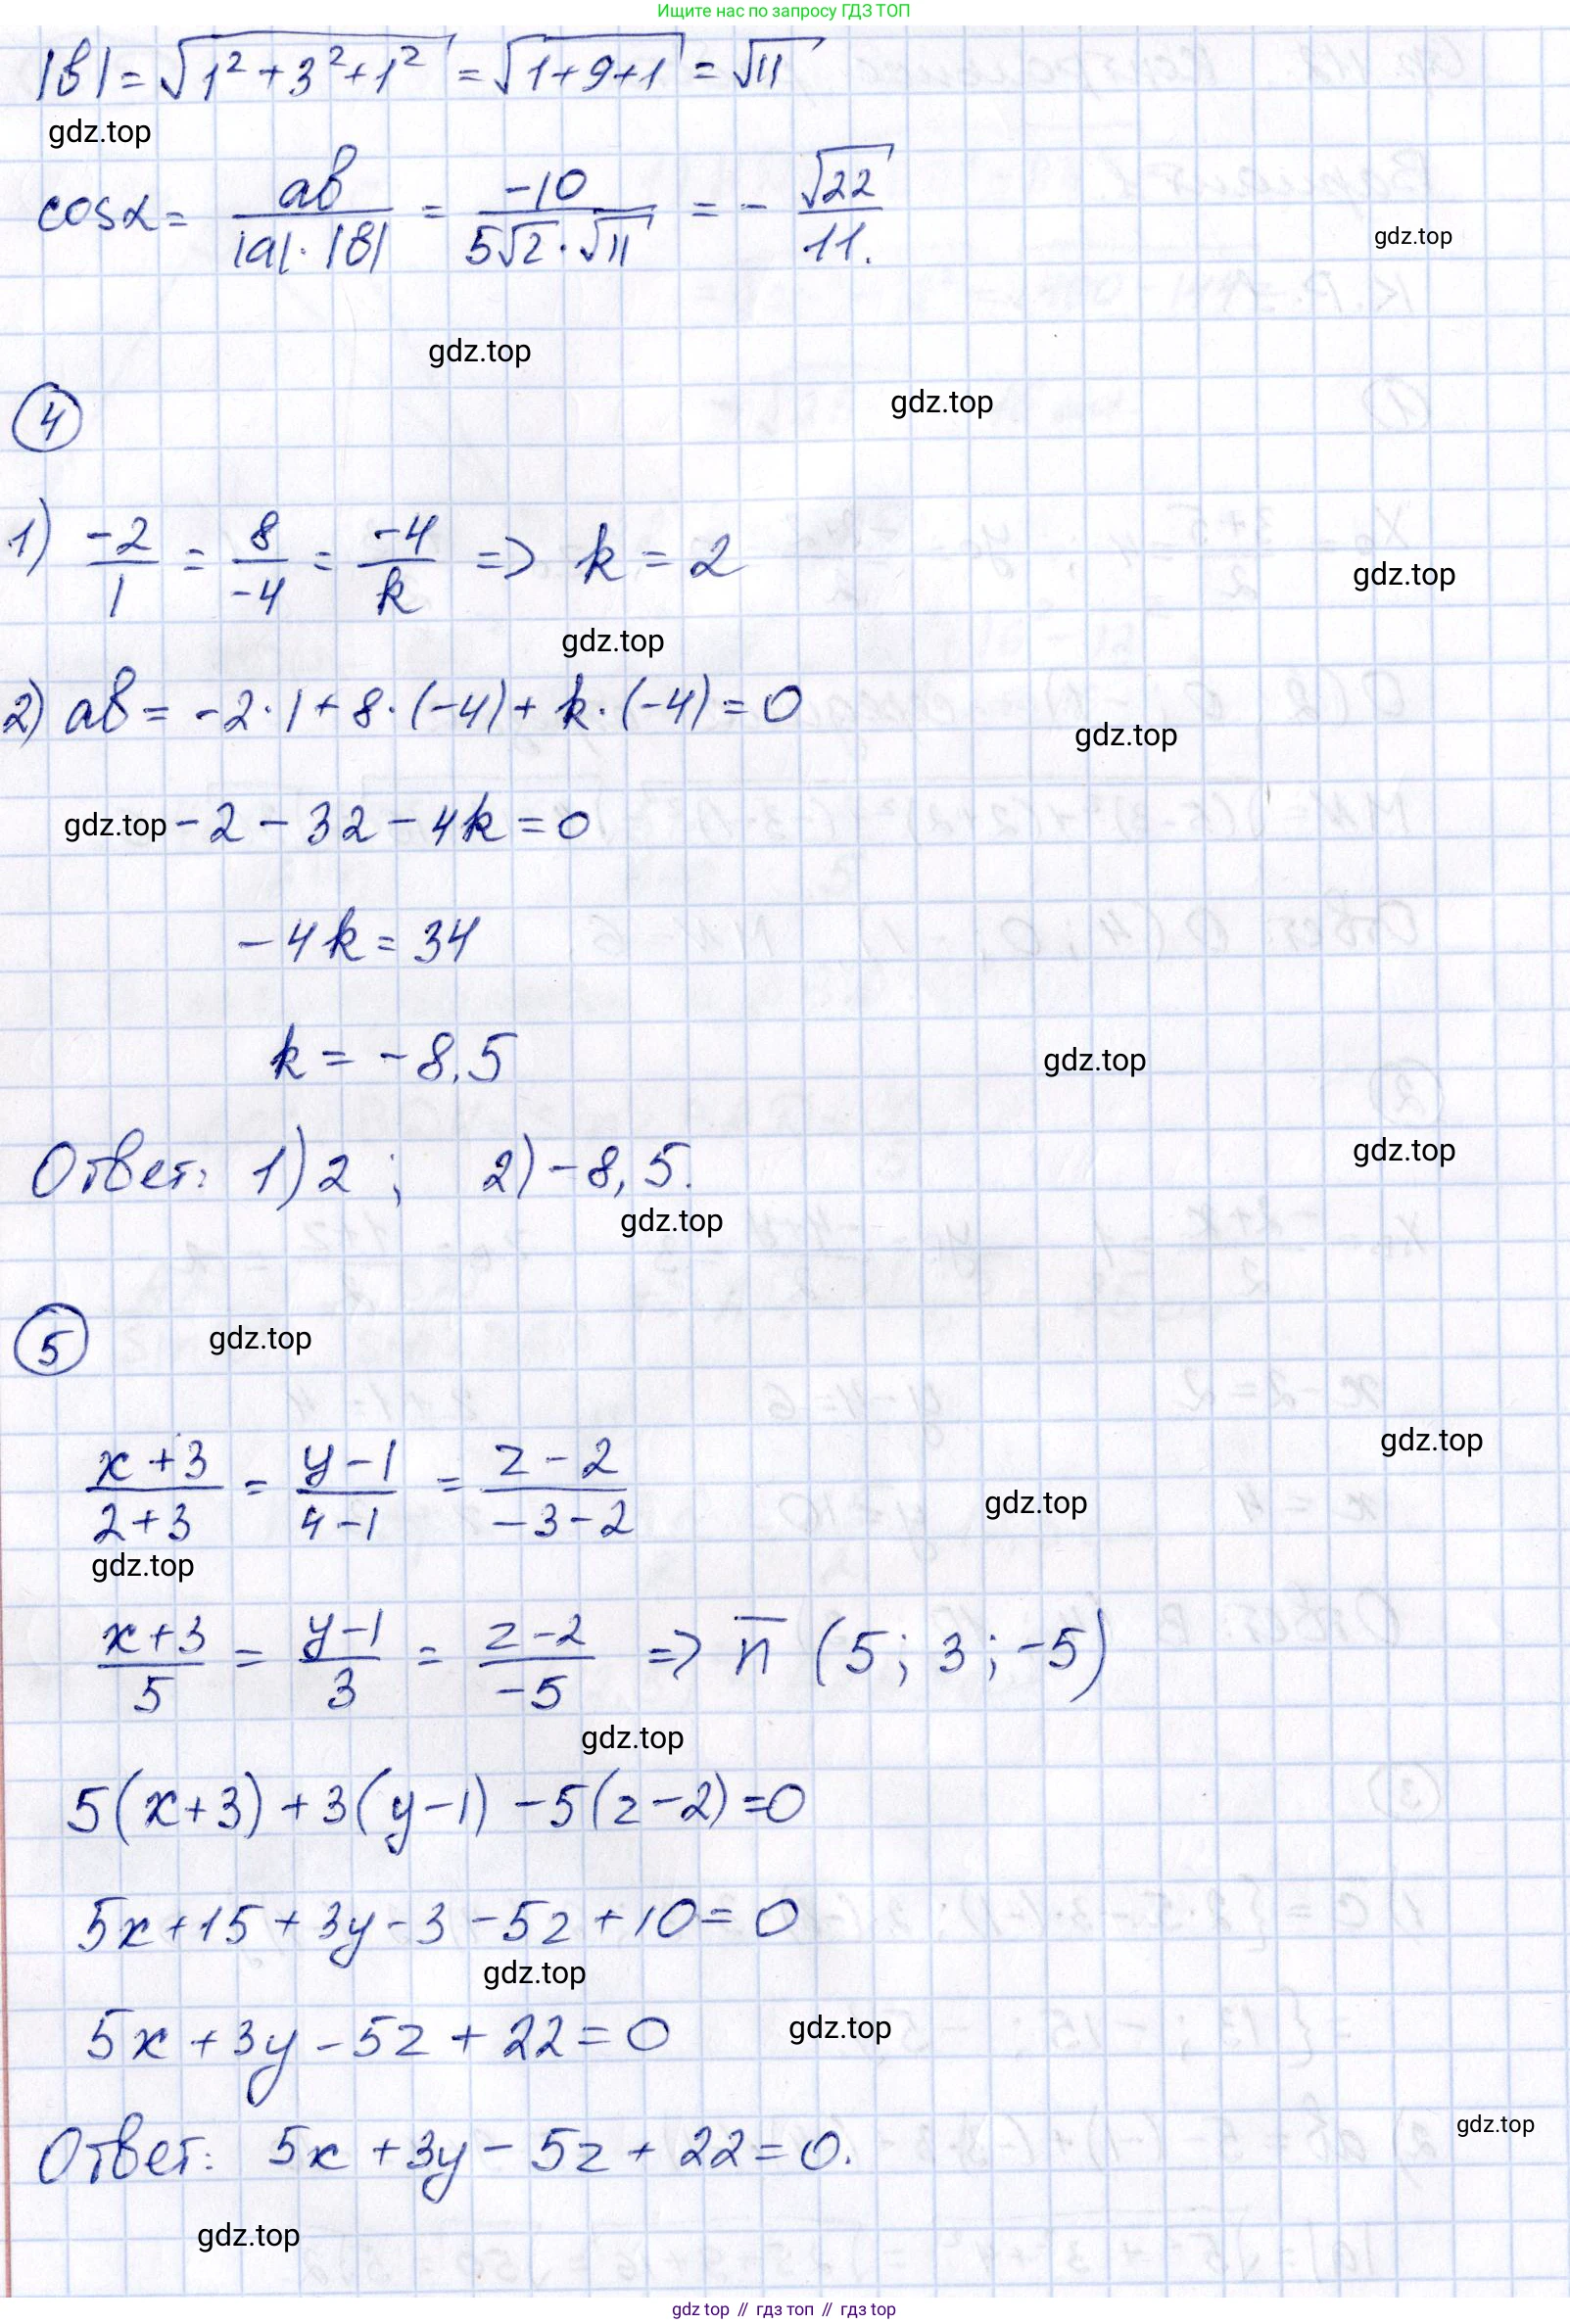 Ищите нас по запросу ГДЗ ТОП
|b| = √(1² + 3² + 1²) = √(1+9+1) = √11
gdz.top
cosα = ab / (|a|·|b|) = -10 / (5√2·√11) = - √22 / 11.
gdz.top
gdz.top
gdz.top
4
1) -2/1 = 8/-4 = -4/k => k = 2
gdz.top
gdz.top
2) ab = -2·1 + 8·(-4) + k·(-4) = 0
gdz.top
gdz.top -2 - 32 - 4k = 0
-4k = 34
k = -8.5
gdz.top
Ответ: 1) 2 ; 2) -8,5.
gdz.top
gdz.top
5
gdz.top
gdz.top
(x+3)/(2+3) = (y-1)/(4-1) = (z-2)/(-3-2)
gdz.top
gdz.top
(x+3)/5 = (y-1)/3 = (z-2)/-5 => n̅ (5; 3; -5)
gdz.top
5(x+3) + 3(y-1) - 5(z-2) = 0
5x + 15 + 3y - 3 - 5z + 10 = 0
gdz.top
5x + 3y - 5z + 22 = 0
gdz.top
Ответ: 5x + 3y - 5z + 22 = 0.
gdz.top
gdz.top
gdz top // гдз топ // гдз top